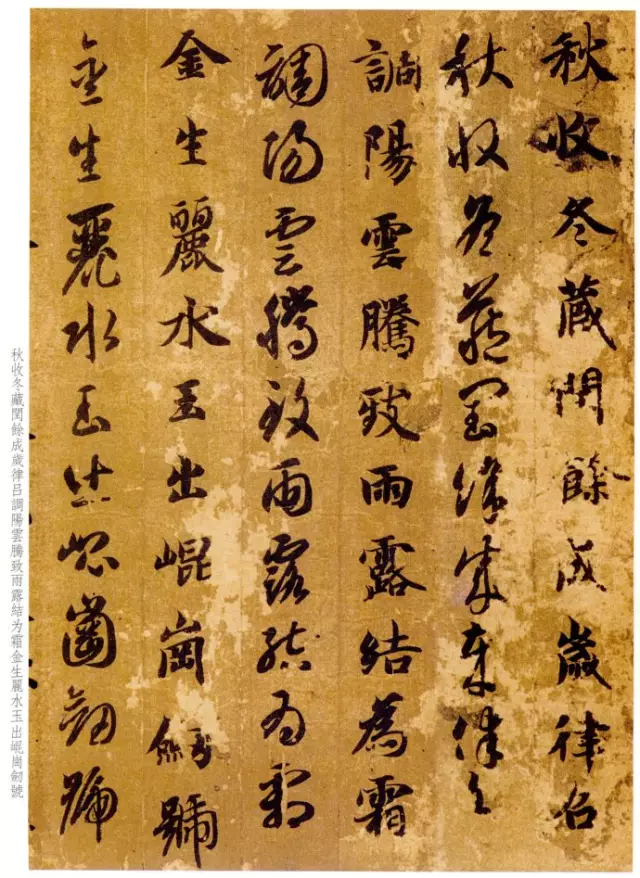 秋收冬藏閏餘成歲律召
秋收冬藏閏餘成歲律召
調陽雲騰致雨露結為霜
調陽雲騰致雨露結為霜
金生麗水玉出崐崗劒號
金生麗水玉出崐崗劒號
秋收冬藏閏餘成歲律呂調陽雲騰致雨露結为霜金生麗水玉出崐崗劒號